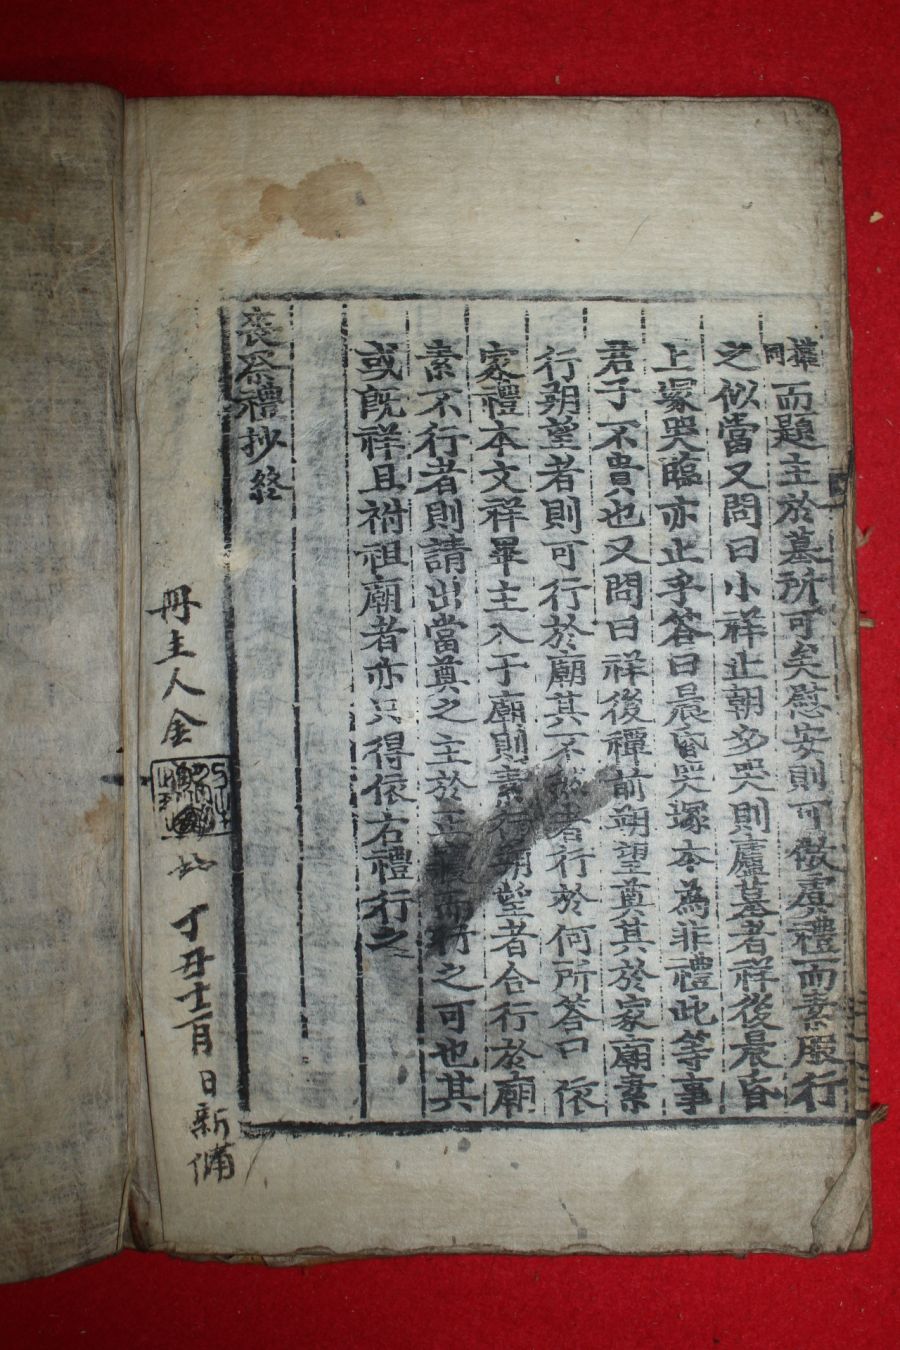 而題主於墓所可矣慰安則可倣虞禮而素服行
之似當又問曰小祥止朝夕哭則廬墓者祥後晨昏
上塚哭臨亦止乎答曰晨昏哭塚本為非禮此等事
君子不貴也又問曰祥後禫前朔望奠其於家廟素
行朔望者則可行於廟其不然者行於何所答曰依
家禮本文祥畢主入于廟則素行朔望者合行於廟
素不行者則請出當奠之主於正寢而行之可也其
或旣祥且祔祖廟者亦只得依右禮行之
喪祭禮抄終
冊主人金
丁丑十二月 日新備